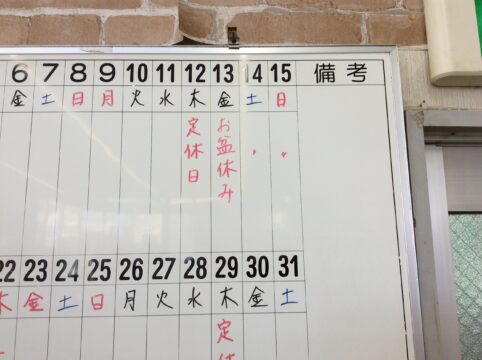 6 7 8 9 10 11 12 13 14 15 備考
金 土 日 月 火 水 木 金 土 日
定休日
お盆休み
〃
〃
22 23 24 25 26 27 28 29 30 31
木 金 土 日 月 火 水 木 金 土
定休